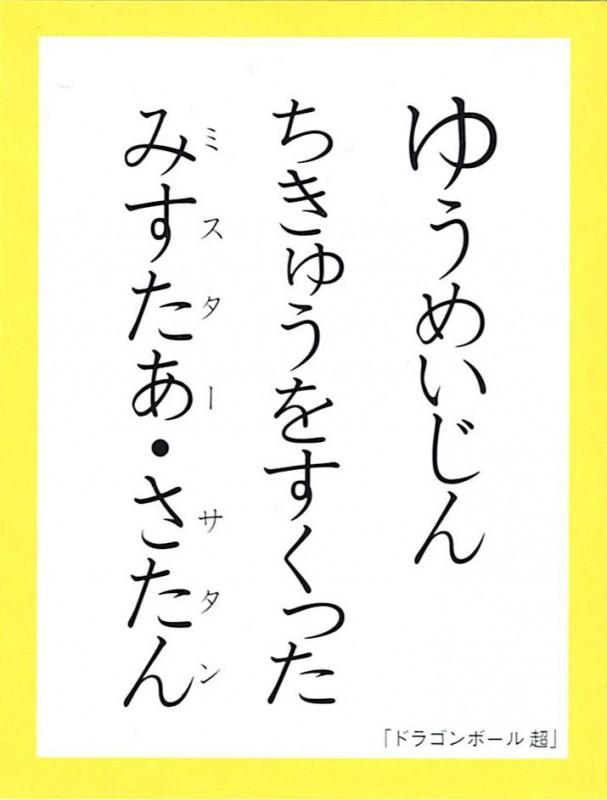 ゆうめいじん
ちきゅうをすくった
みすたあ・さたん
ミスター サタン
「ドラゴンボール 超」